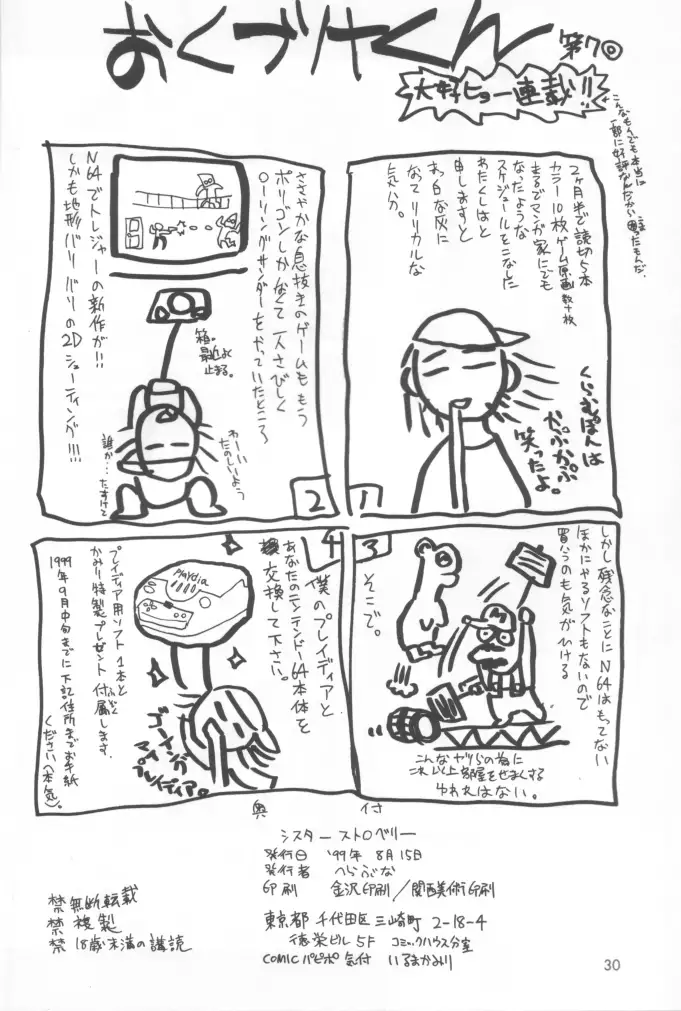 おくづけくん
第7回
大好ヒョー連載!!
こんなもんでも本当に
一部に好評なんだから困ったもんだ。
2ヶ月半で読切5本
カラー10枚ゲーム原画数十枚
まるでマンガ家にでも
なったような
スケジュールをこなした
わたくしはと
申しますと
まっ白な灰に
なってリリカルな
気分。
くらむぽんは
かぷかぷ
笑ったよ。
1
ささやかな息抜きのゲームももう
ポリゴンしかなくて一人さびしく
ローリングサンダーをやっていたところ
N64でトレジャーの新作が!!
しかも地形バリバリの2Dシューティング!!!
箱。
最近よく
止まる。
わーい
たのしいよう
誰か…たすけて
2
しかし残念なことにN64はもってない
ほかにやるソフトもないので
買うのも気がひける
そこで。
こんなヤツらの為に
これ以上部屋をせまくする
わけにはいかない。
3
僕のプレイディアと
あなたのニンテンドー64本体を
交換して下さい。
Playdia
プレイディア用ソフト1本と
かみり特製プレゼント付属します。
1999年9月中旬までに下記住所までお手紙
ください(本気)。
ゴーイング
マイ
プレイディア。
4
奥付
シスターストロベリー
発行日 '99年 8月15日
発行者 へらぶな
印刷 金沢印刷/関西美術印刷
東京都千代田区三崎町 2-18-4
徳栄ビル5F コミックハウス分室
COMICパピポ気付 いるまかみり
禁無断転載
禁複製
禁18歳未満の講読
30